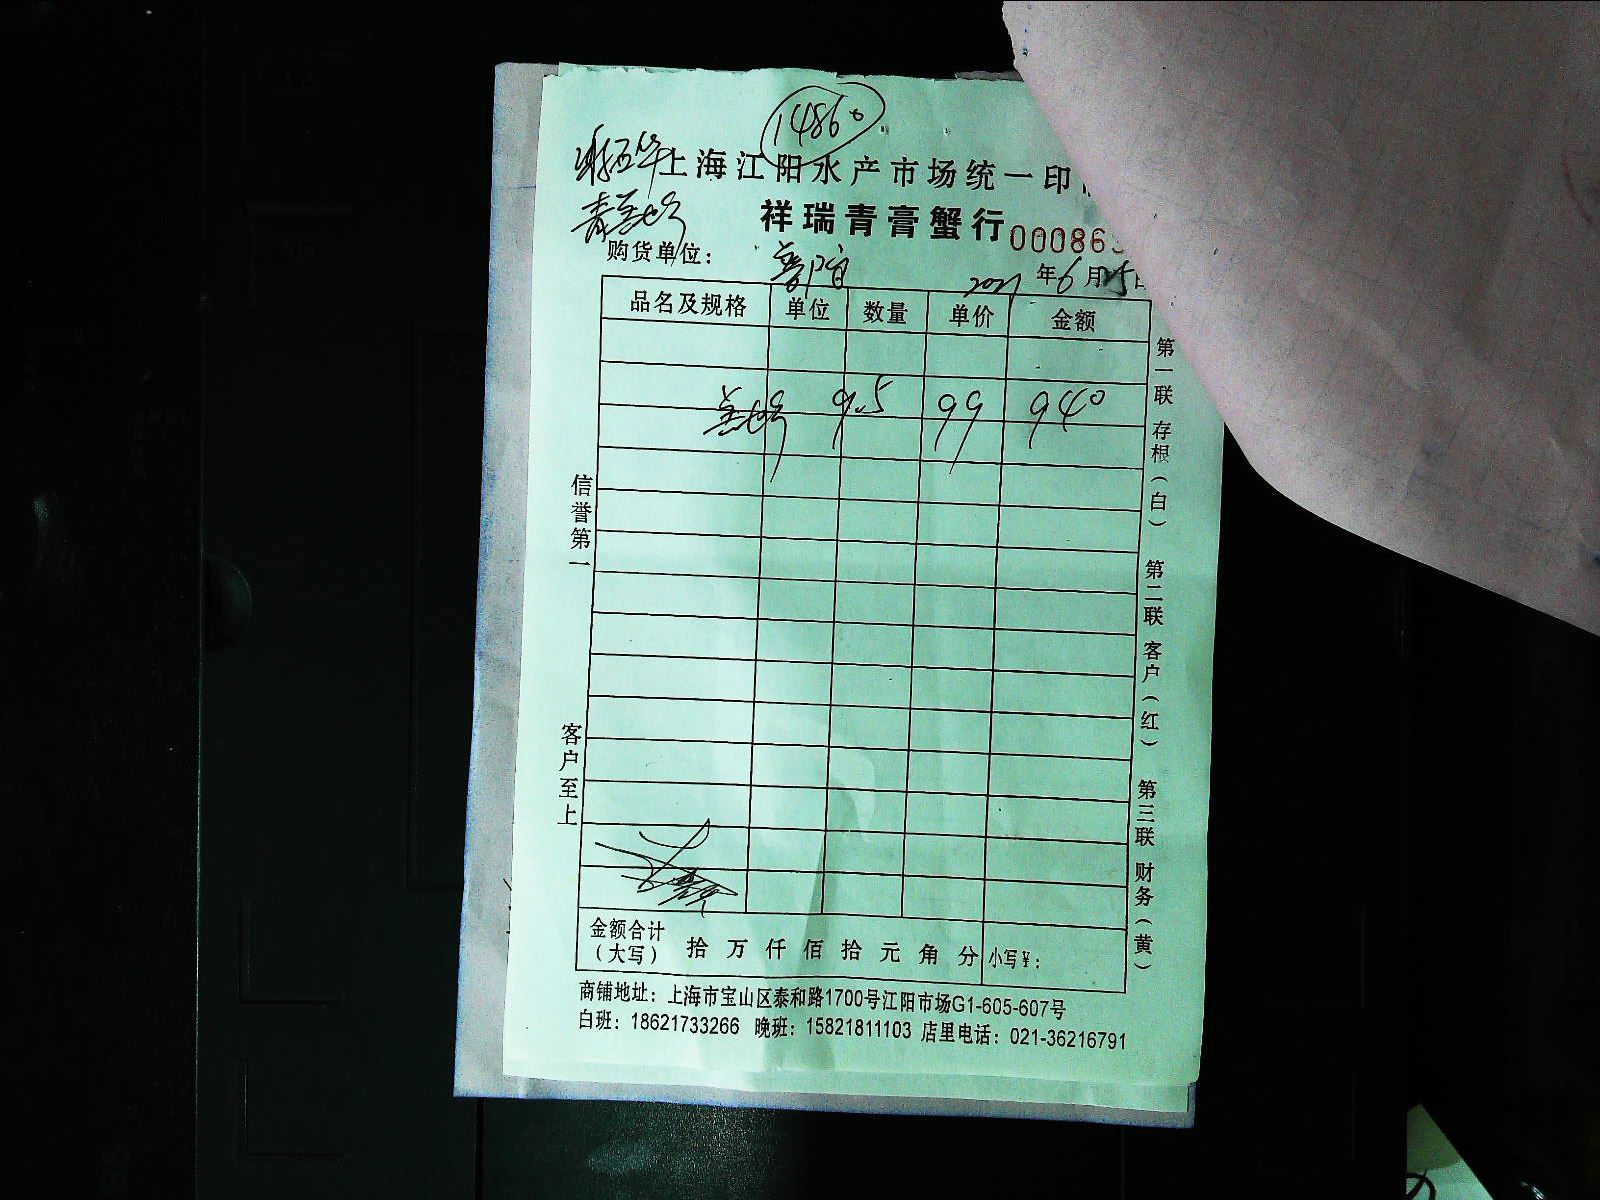 1486.0
上海江阳水产市场统一印
祥瑞青膏蟹行 000869
购货单位：
2021 年 6 月 25 日
品名及规格 单位 数量 单价 金额
9.5 99 940
信誉第一
客户至上
第一联 存根（白） 第二联 客户（红） 第三联 财务（黄）
金额合计（大写） 拾 万 仟 佰 拾 元 角 分 小写￥：
商铺地址：上海市宝山区泰和路1700号江阳市场G1-605-607号
白班：18621733266 晚班：15821811103 店里电话：021-36216791